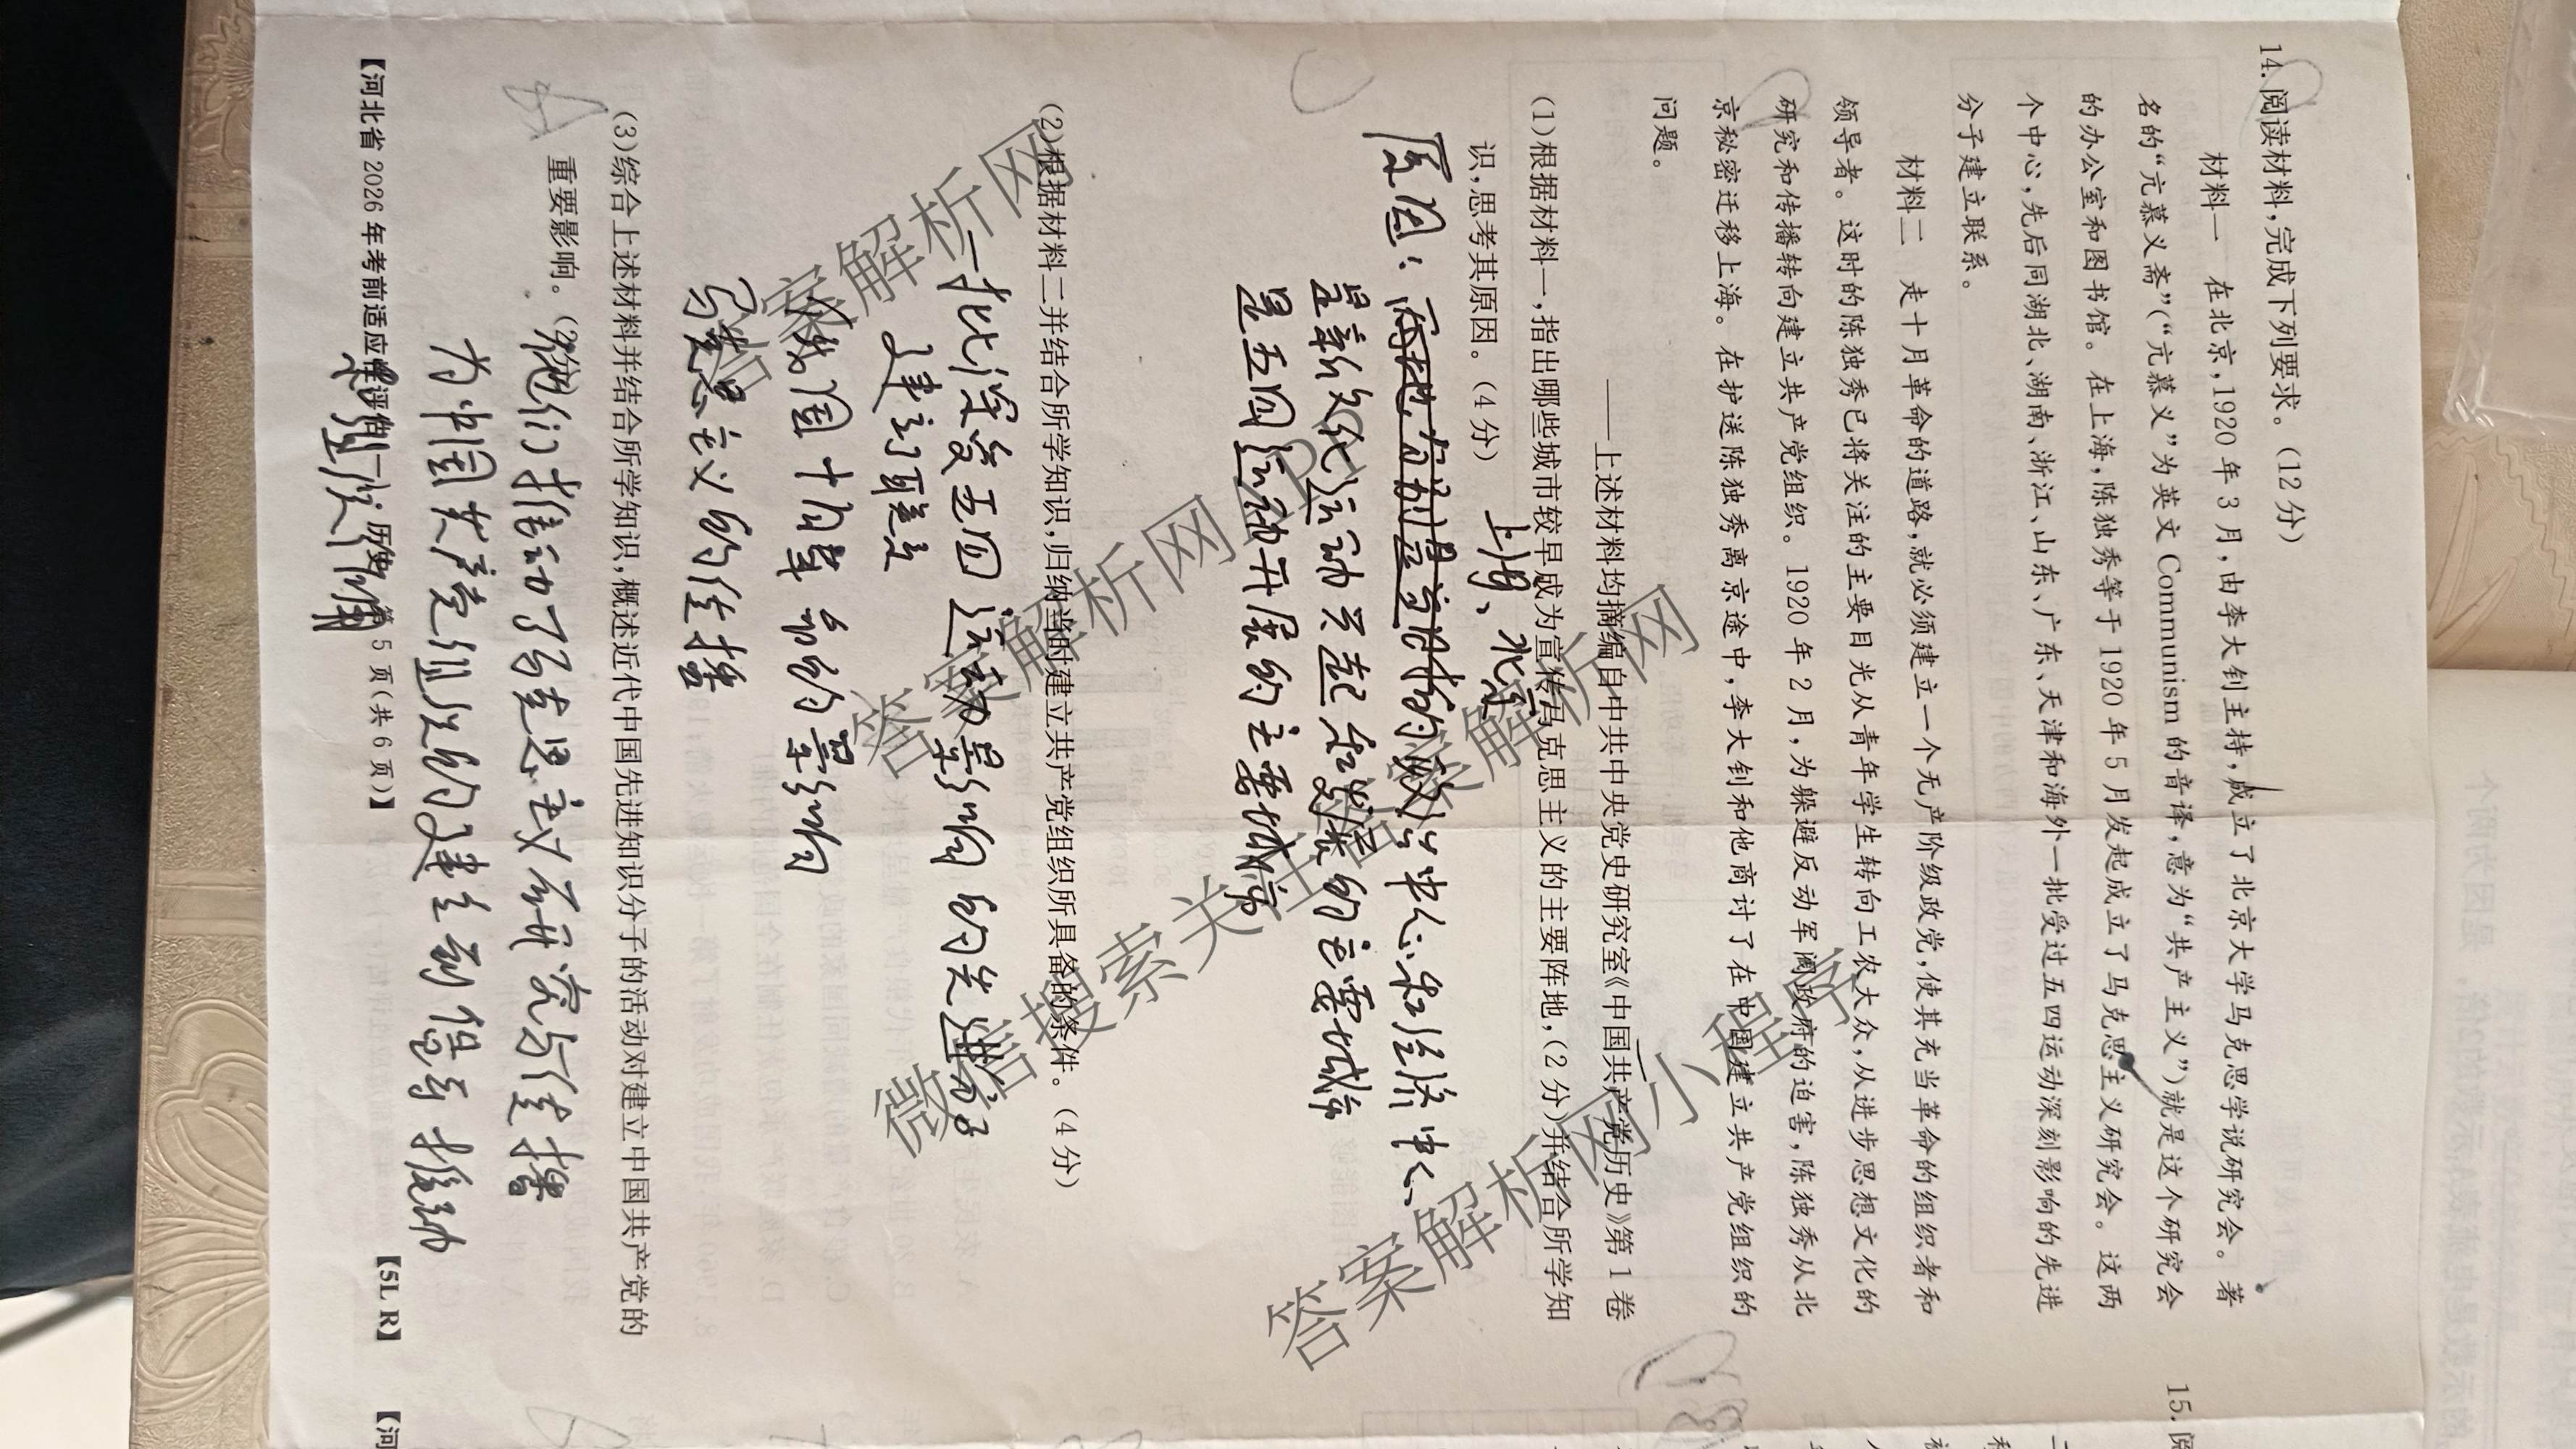 14.阅读材料,完成下列要求。(12分)
材料一 在北京,1920年3月,由李大钊主持,成立了北京大学马克思学说研究会。著
名的“亢慕义斋”(“亢慕义”为英文Communism的音译,意为“共产主义”)就是这个研究会
的办公室和图书馆。在上海,陈独秀等于1920年5月发起成立了马克思主义研究会。这两
个中心,先后同湖北、湖南、浙江、山东、广东、天津和海外一批受过五四运动深刻影响的先进
分子建立联系。
材料二 走十月革命的道路,就必须建立一个无产阶级政党,使其充当革命的组织者和
领导者。这时的陈独秀已将关注的主要目光从青年学生转向工农大众,从进步思想文化的
研究和传播转向建立共产党组织。1920年2月,为躲避反动军阀政府的迫害,陈独秀从北
京秘密迁移上海。在护送陈独秀离京途中,李大钊和他商讨了在中国建立共产党组织的
问题。
——上述材料均摘编自中共中央党史研究室《中国共产党历史》第1卷
(1)根据材料一,指出哪些城市较早成为宣传马克思主义的主要阵地,(2分)并结合所学知
识,思考其原因。(4分)
上海、北京
原因:
政治中心和经济中心
是新文化运动兴起和发展的主要城市
是五四运动开展的主要城市
(2)根据材料二并结合所学知识,归纳当时建立共产党组织所具备的条件。(4分)
一批深受五四运动影响的先进分子
建立了联系
俄国十月革命的影响
马克思主义的传播
(3)综合上述材料并结合所学知识,概述近代中国先进知识分子的活动对建立中国共产党的
重要影响。(2分)
他们推动了马克思主义研究与传播
为中国共产党组织的建立到倡导推动
和组织作用
【河北省2026年考前适应性评估(一)·历史 第5页(共6页)】
【5L R】
【河
15.阅
答案解析网
答案解析网
答案解析网
微信搜索关注答案解析网
答案解析网小程序